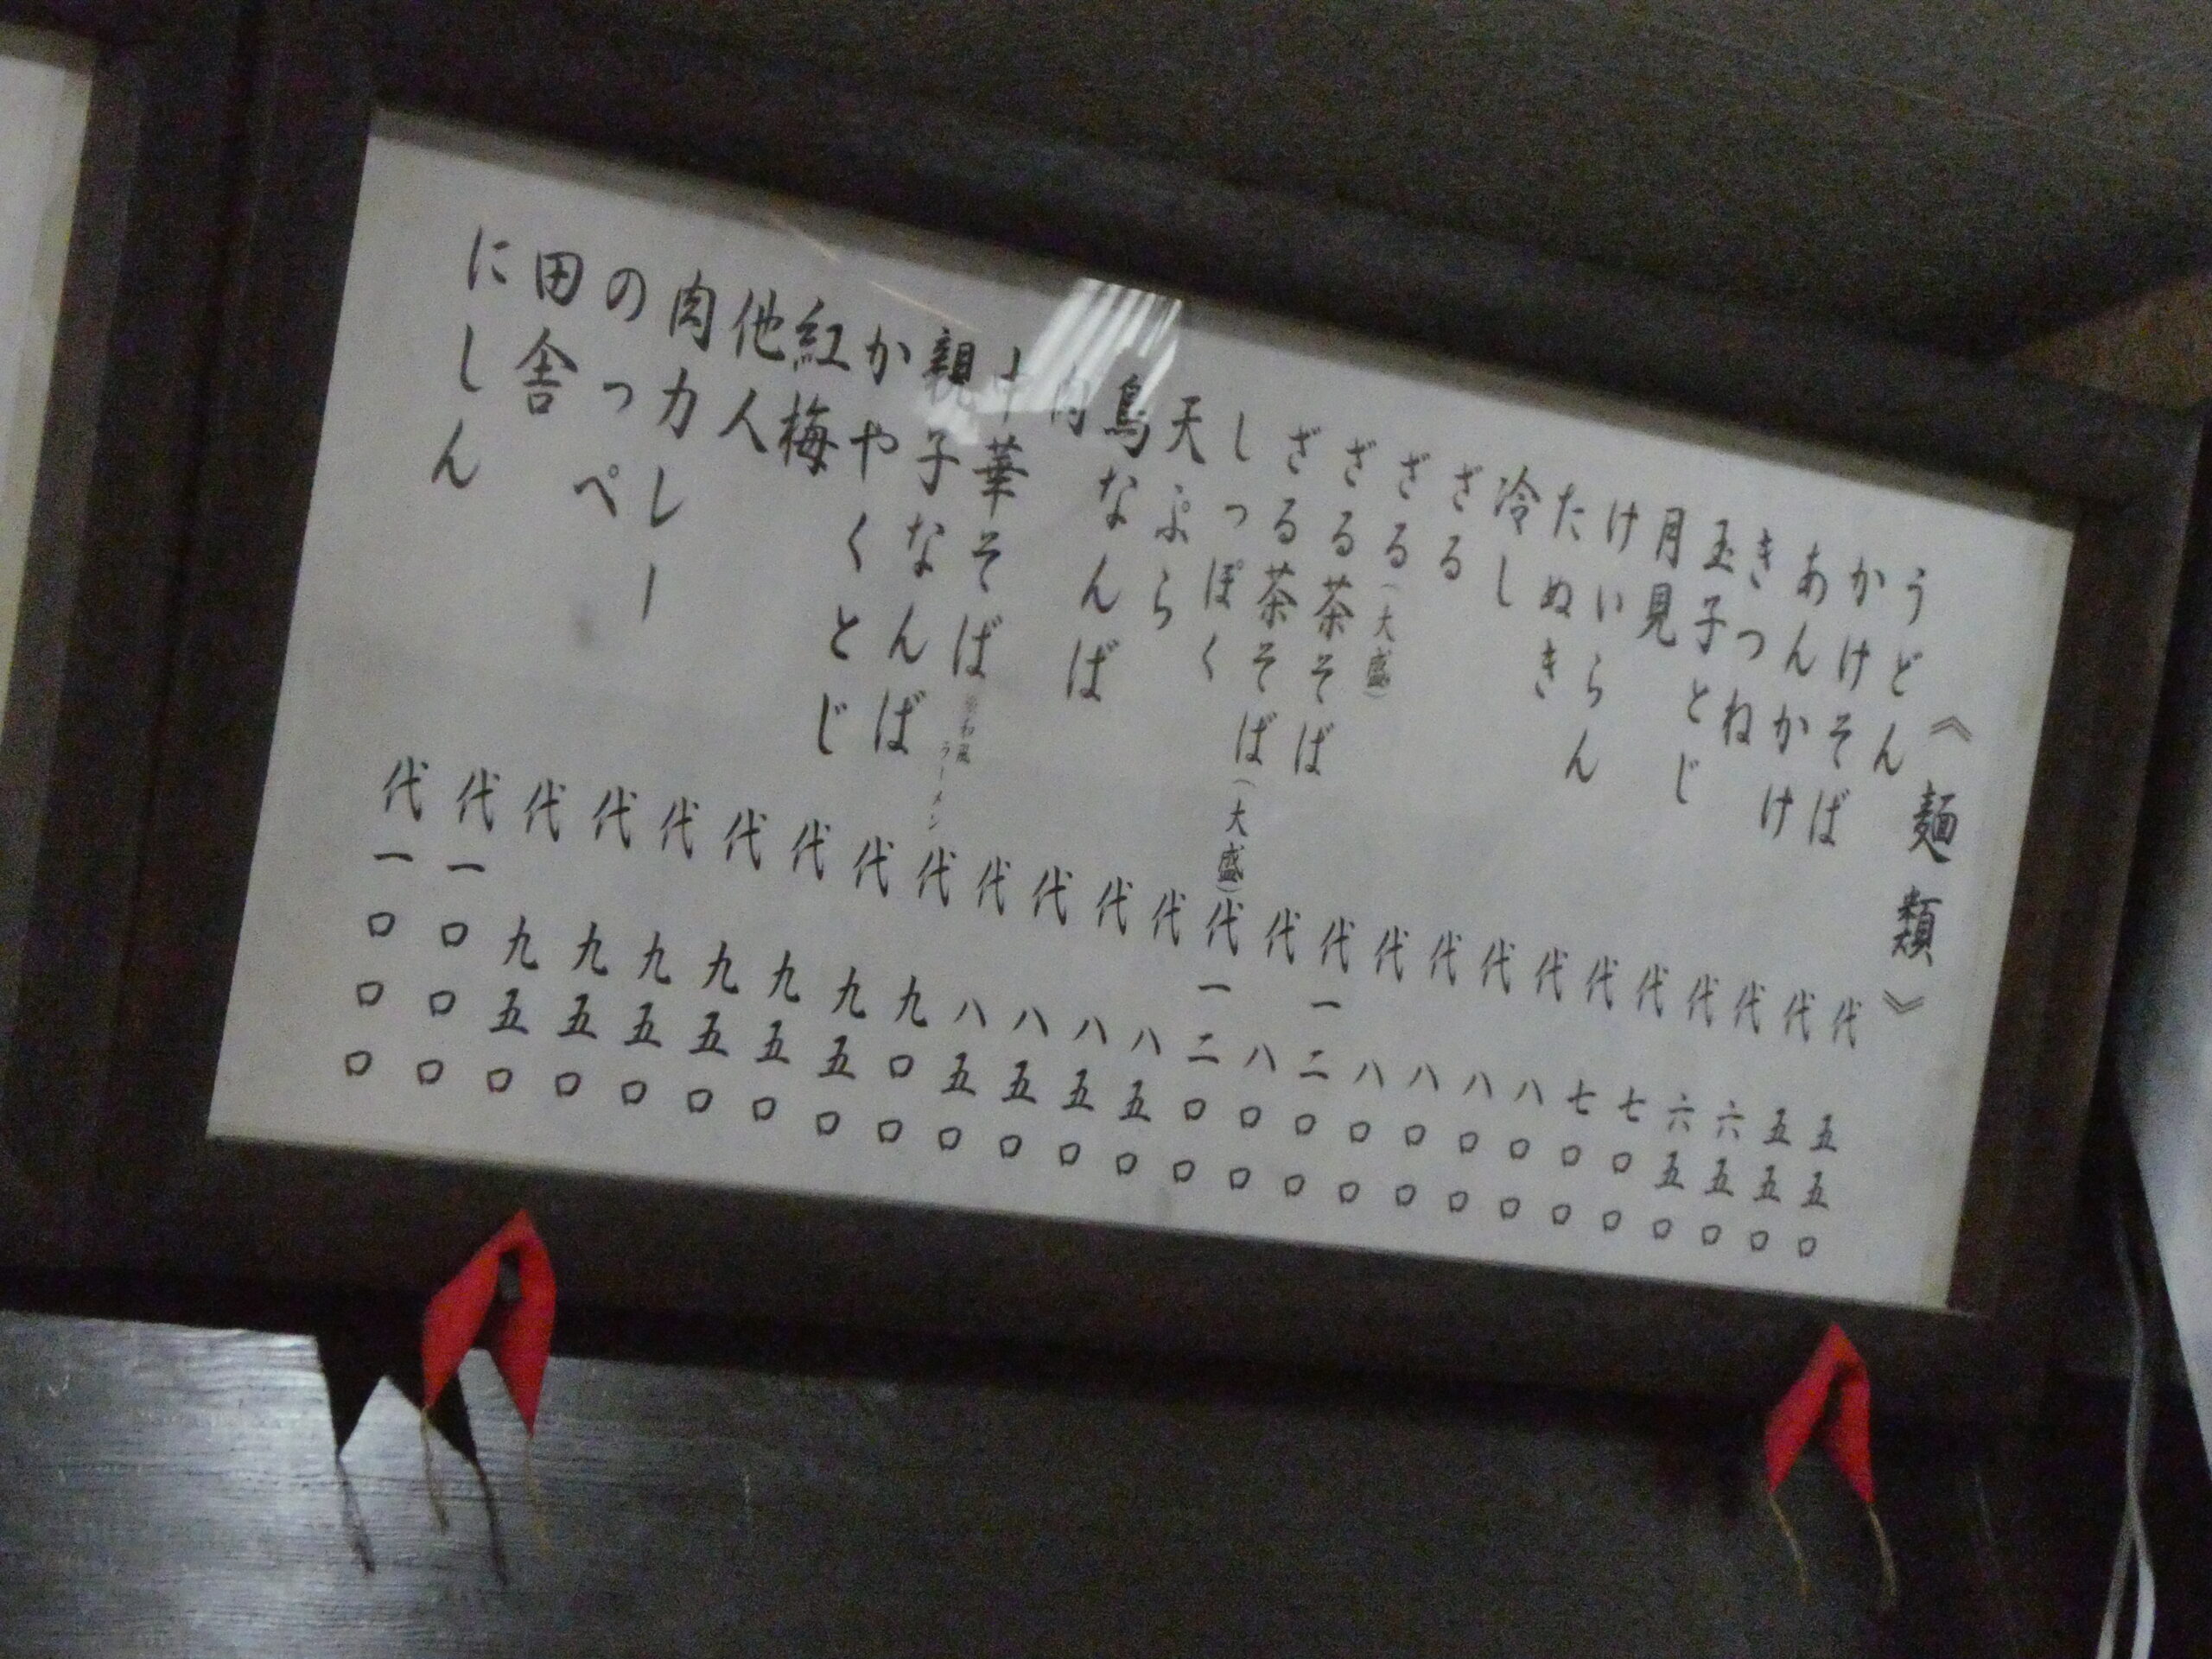 《麺類》
うどん 代 五五〇
かけそば 代 五五〇
あんかけ 代 六五〇
きつね 代 六五〇
玉子とじ 代 七〇〇
月見 代 七〇〇
けいらん 代 八〇〇
たぬき 代 八〇〇
冷し 代 八〇〇
ざる 代 八〇〇
ざる(大盛) 代 一二〇〇
ざる茶そば 代 八〇〇
ざる茶そば(大盛) 代 一二〇〇
しっぽく 代 八五〇
天ぷら 代 八五〇
鳥なんば 代 八五〇
肉 代 八五〇
中華そば 和風ラーメン 代 九〇〇
親子なんば 代 九五〇
かやくとじ 代 九五〇
紅梅 代 九五〇
他人 代 九五〇
肉カレー 代 九五〇
のっぺ 代 九五〇
田舎 代 一〇〇〇
にしん 代 一〇〇〇